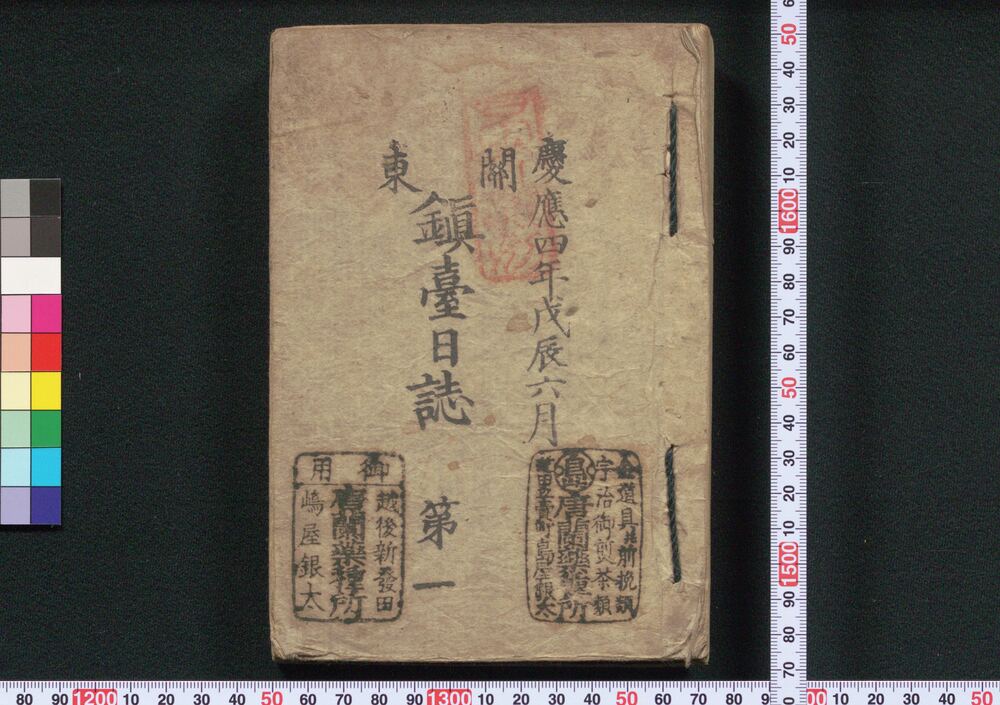 慶應四年戊辰六月
關東
鎮臺日誌
第一
御用
越後新發田
唐蘭藥種所
嶋屋銀太
宇治御煎茶類
唐蘭藥種所
60
50
40
30
20
10
1600
90
80
70
60
50
40
30
20
10
1500
90
80
70
80 90 1200 10 20 30 40 50 60 70 80 90 1300 10 20 30 40 50 60 70 80 90
10 20 30 40 50